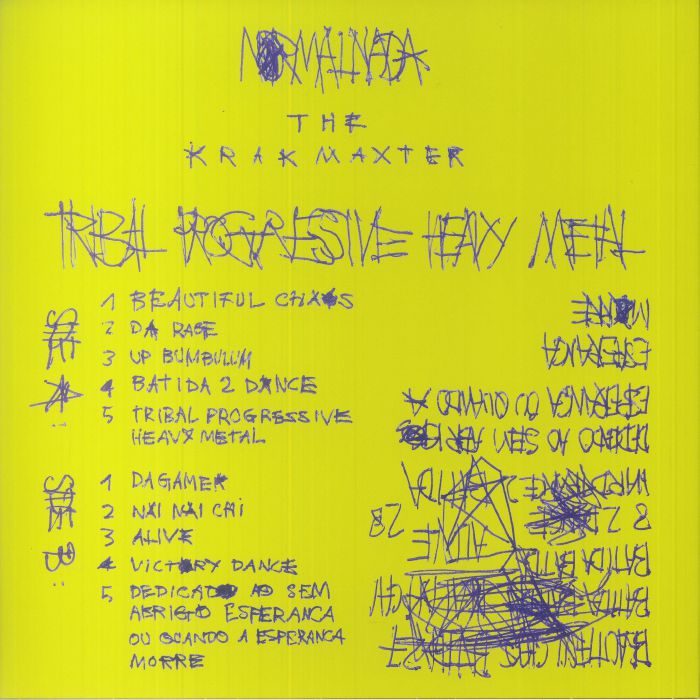 NORMAL NADA
THE
KRAKMAXTER
TRIBAL PROGRESSIVE HEAVY METAL
SIDE A:
1 BEAUTIFUL CHAOS
2 DA RAGE
3 UP BUMBULUM
4 BATIDA 2 DANCE
5 TRIBAL PROGRESSIVE
HEAVY METAL
SIDE B:
1 DA GAMER
2 NAI NAI CHI
3 ALIVE
4 VICTORY DANCE
5 DEDICADO AO SEM
ABRIGO ESPERANCA
OU QUANDO A ESPERANCA
MORRE
MORRE
ESPERANCA
ESPERANCA OU QUANDO A
AO SEM ABRIGO
BATIDA
ALIVE 2B
BATIDA
BATIDA